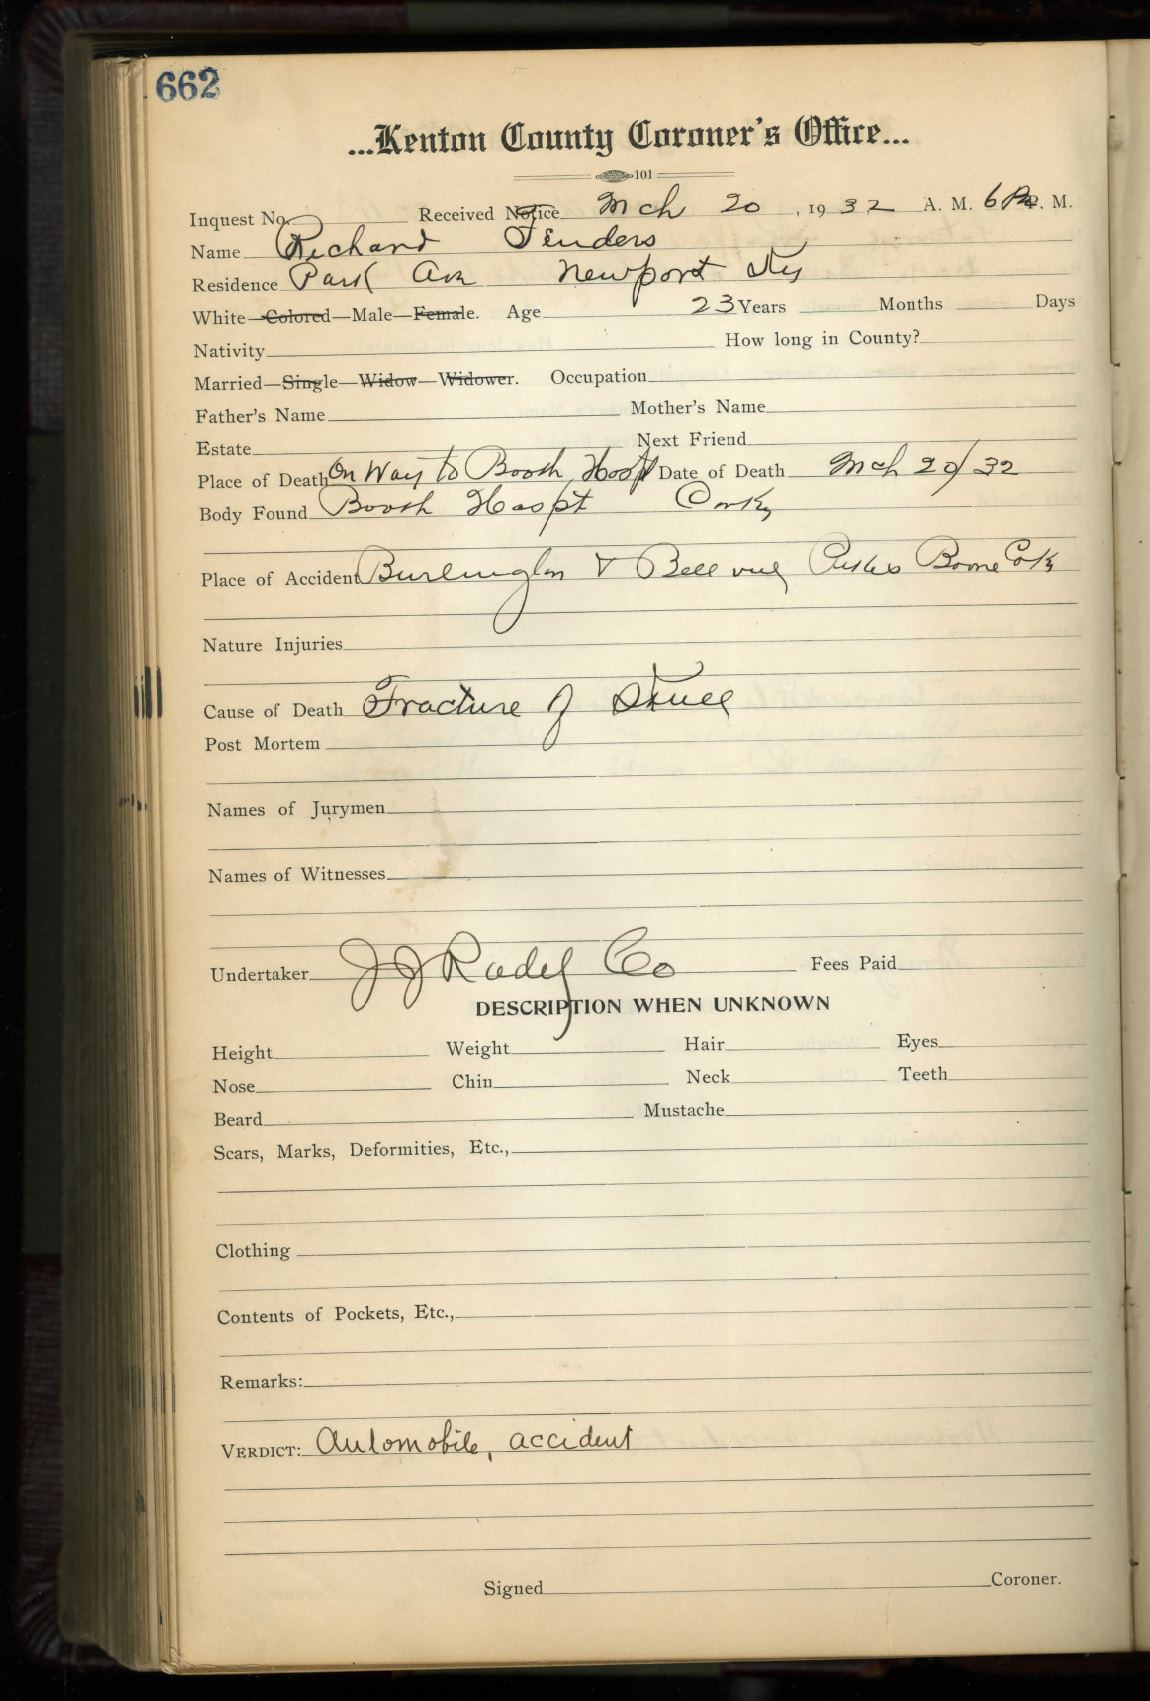 662
...Kenton County Coroner's Office...
101
Inquest No. Received Notice Mch 20, 1932 A. M. 6 Pm P. M.
Name Richard Tenders
Residence Park Ave Newport Ky
White—Colored—Male—Female. Age 23 Years Months Days
Nativity How long in County?
Married—Single—Widow—Widower. Occupation
Father's Name Mother's Name
Estate Next Friend
Place of Death On Way to Booth Hospt Date of Death Mch 20/32
Body Found Booth Hospt Cov Ky
Place of Accident Burlington & Bellevue Boone Co Ky
Nature Injuries
Cause of Death Fracture of Skull
Post Mortem
Names of Jurymen
Names of Witnesses
Undertaker J J Radel Co Fees Paid
DESCRIPTION WHEN UNKNOWN
Height Weight Hair Eyes
Nose Chin Neck Teeth
Beard Mustache
Scars, Marks, Deformities, Etc.,
Clothing
Contents of Pockets, Etc.,
Remarks:
VERDICT: Automobile, accident
Signed Coroner.